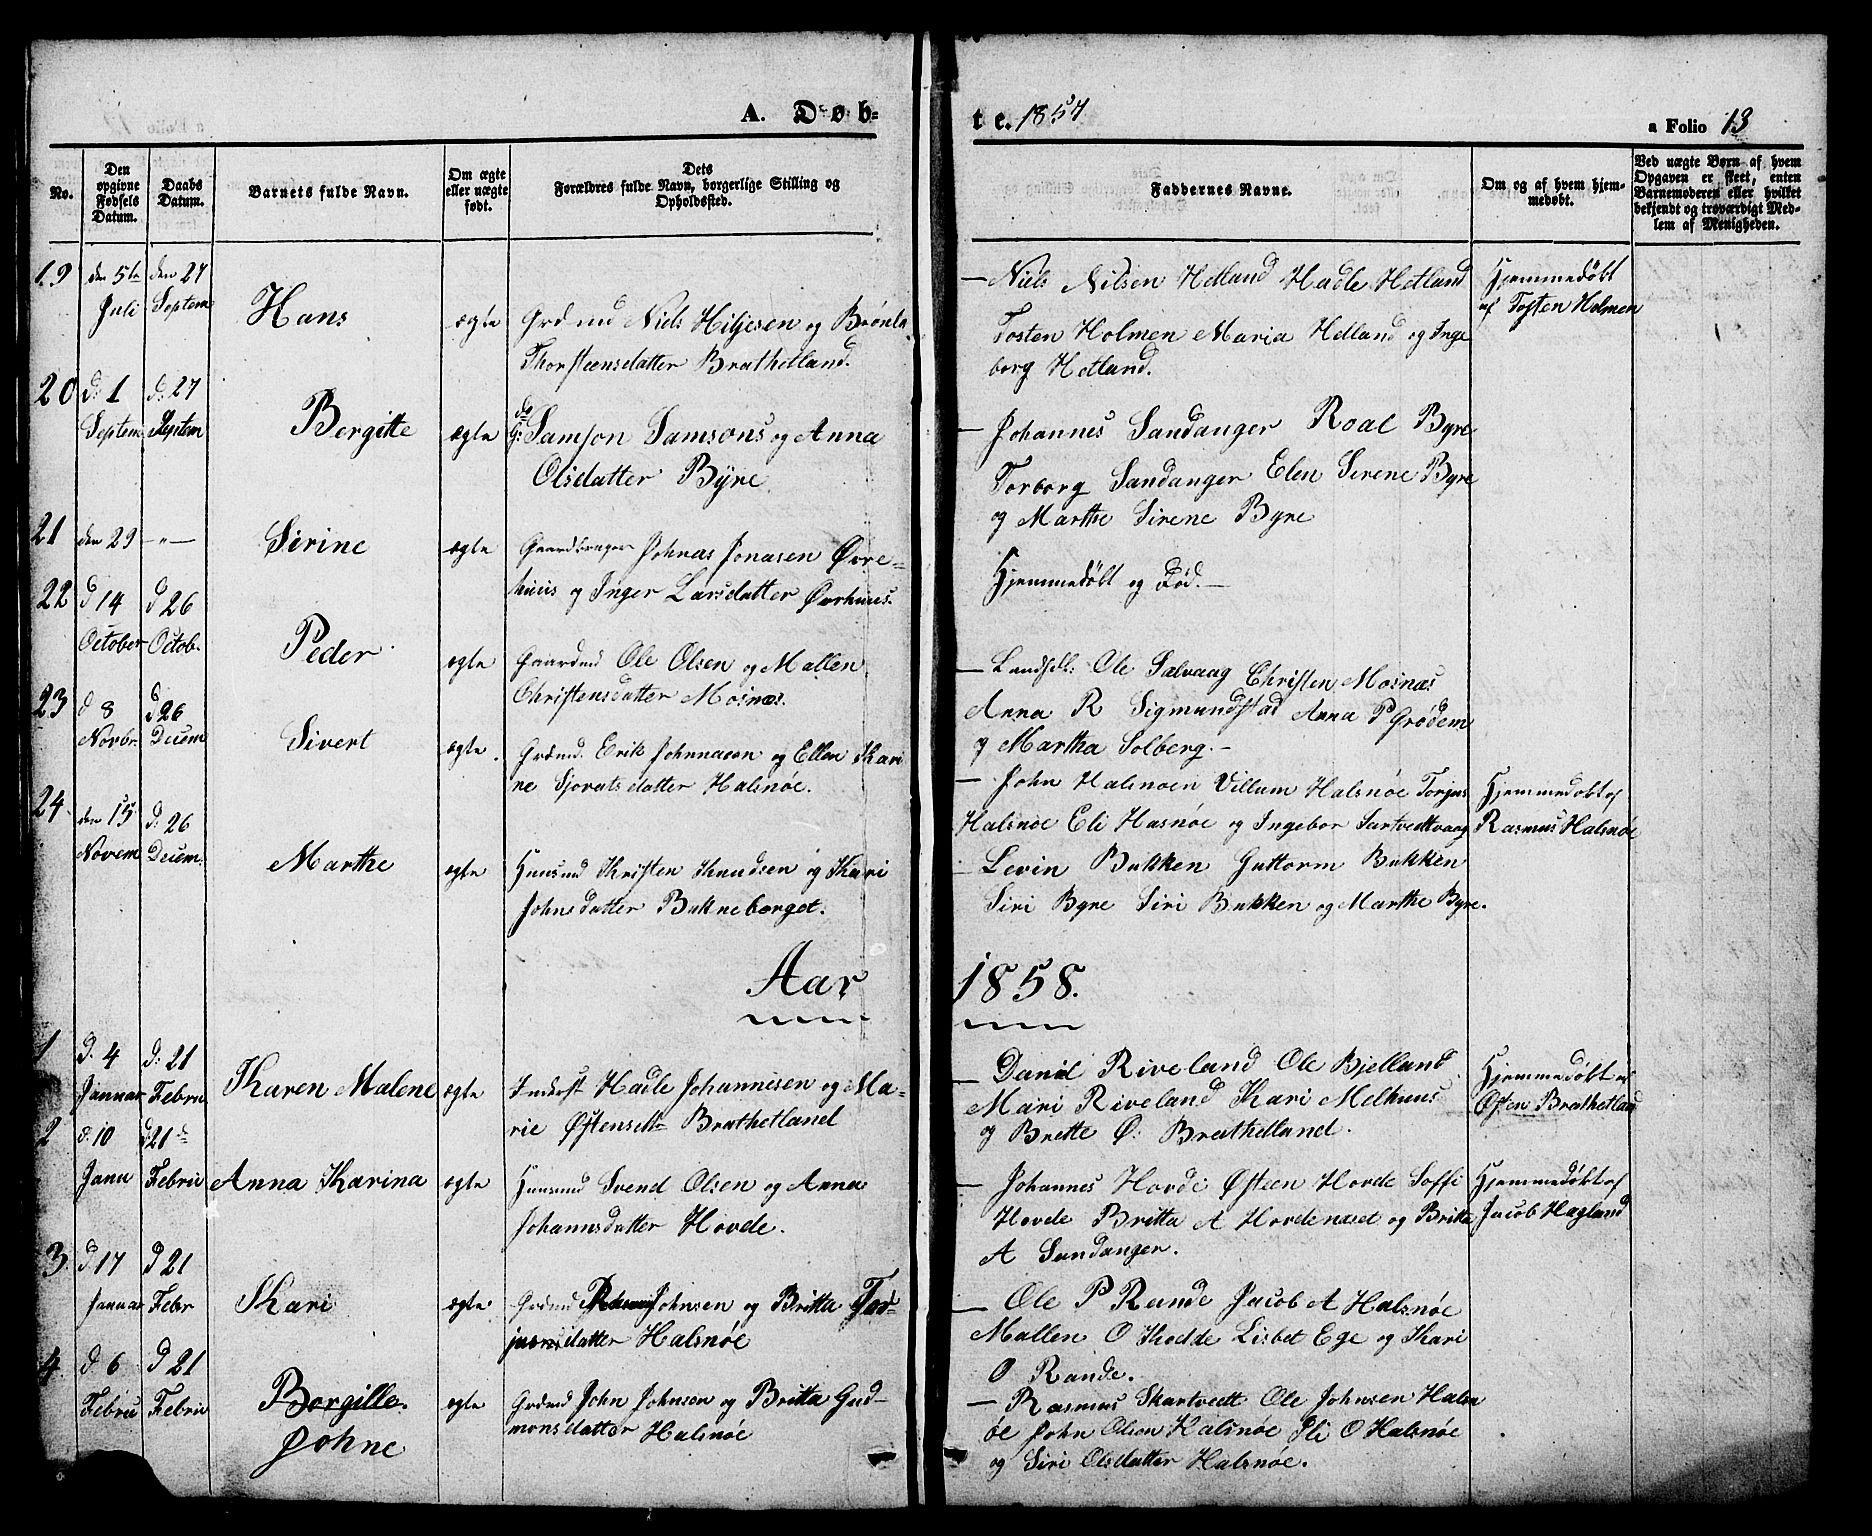 A. Døb=
te. 1857
a Folio 13
No.
Den opgivne Fødsels Datum.
Daabs Datum.
Barnets fulde Navn.
Om ægte eller uægte født.
Dets Forældres fulde Navn, borgerlige Stilling og Opholdssted.
Faddernes Navne.
Om og af hvem hjemmedøbt.
Ved uægte Børn af hvem Opgaven er skeet, enten Barnemoderen eller hvilket bekjendt og troværdigt Medlem af Menigheden.
19 den 5te Juli den 27 Septem Hans ægte
Grdmd Niels Hiljesen og Brønla
Thorsteensdatter Brathetland.
— Niels Nilsen Hetland Hadle Hetland
Tosten Holmen Maria Hetland og Inge
borg Hetland.
Hjemmedøbt
af Tosten Holmen
20 d: 1 Septem d: 27 Septem Bergitte ægte
do G: Samson Samsons og Anna
Olsdatter Byre
— Johannes Sandanger Roal Byre
Torborg Sandanger Elen Serene Byre
og Marthe Sirene Byre
21 den 29 —"— Sirine ægte
Gaardbruger Johnas Jonasen Øvre-
huus og Inger Larsdatter Øvrhuus.
Hjemmedøbt og Død.—
22 d 14 October d 26 Octob. Peder ægte
Gaardmd Ole Olsen og Mallen
Christensdatter Mosnæs.
— Ole Salvaag Christen Mosnæs
Anna R Sigmundstad Anna P Grødem
og Martha Solberg.—
23 d 8 Novbr. d 26 Decem Sivert ægte.
Grdmd. Erik Johnnason og Ellen Kari
ne Sjovatsdatter Halsnøe.
— John Halsnoen Villum Halsnøe Torjus
Halsnøe Eli Hasnøe og Ingebor Sartvedtvaag
Hjemmedøbt af
Rasmus Halsnøe
24 den 15 Novem d: 26 Decem. Marthe ægte
Huusmd Kristen Knudsen og Kari
Johnsdatter Bukneberget.
— Levin Bukken Guttorm Bukken
Siri Byre Siri Bukken og Marthe Byre.
Aar 1858.
1 d. 4 Januar d: 21 Febru Karen Malene ægte
Inderst Hadle Johannesen og Ma-
rie Østensdtr Brathetland
— David Riveland Ole Bjelland
Mari Riveland Kari Melhuus
og Brette Ø: Brathetland.
Hjemmedøbt af
Østen Brathetland
2 d: 10 Janu d 21de Febru Anna Karina ægte
Huusmd Svend Olsen og Anna
Johannsdatter Hovde.
— Johannes Hovde Østeen Hovde Soffi
Hovde Britta A Hovdenæset og Britta
A Sandanger.
Hjemmedøbt af
Jacob Hagland
3. d 17 Januar d 21 Febr Kari ægte
Grdmd Johnsen og Britta Tor-
datter Halsnøe
— Ole P Rande Jacob A Halsnøe
Mallen O Kodde Lisbet Ege og Kari
O Rande.
4. d 6 Febru d 21 Febru Bergille Johne ægte
Grdmd John Johnson og Britta Gud-
monsdatter Halsnøe
— Rasmus Skartvedt Ole Johnsen Halsn
øe John Olson Halsnøe Eli O Halsnøe
og Siri Olsdatter Halsnøe.